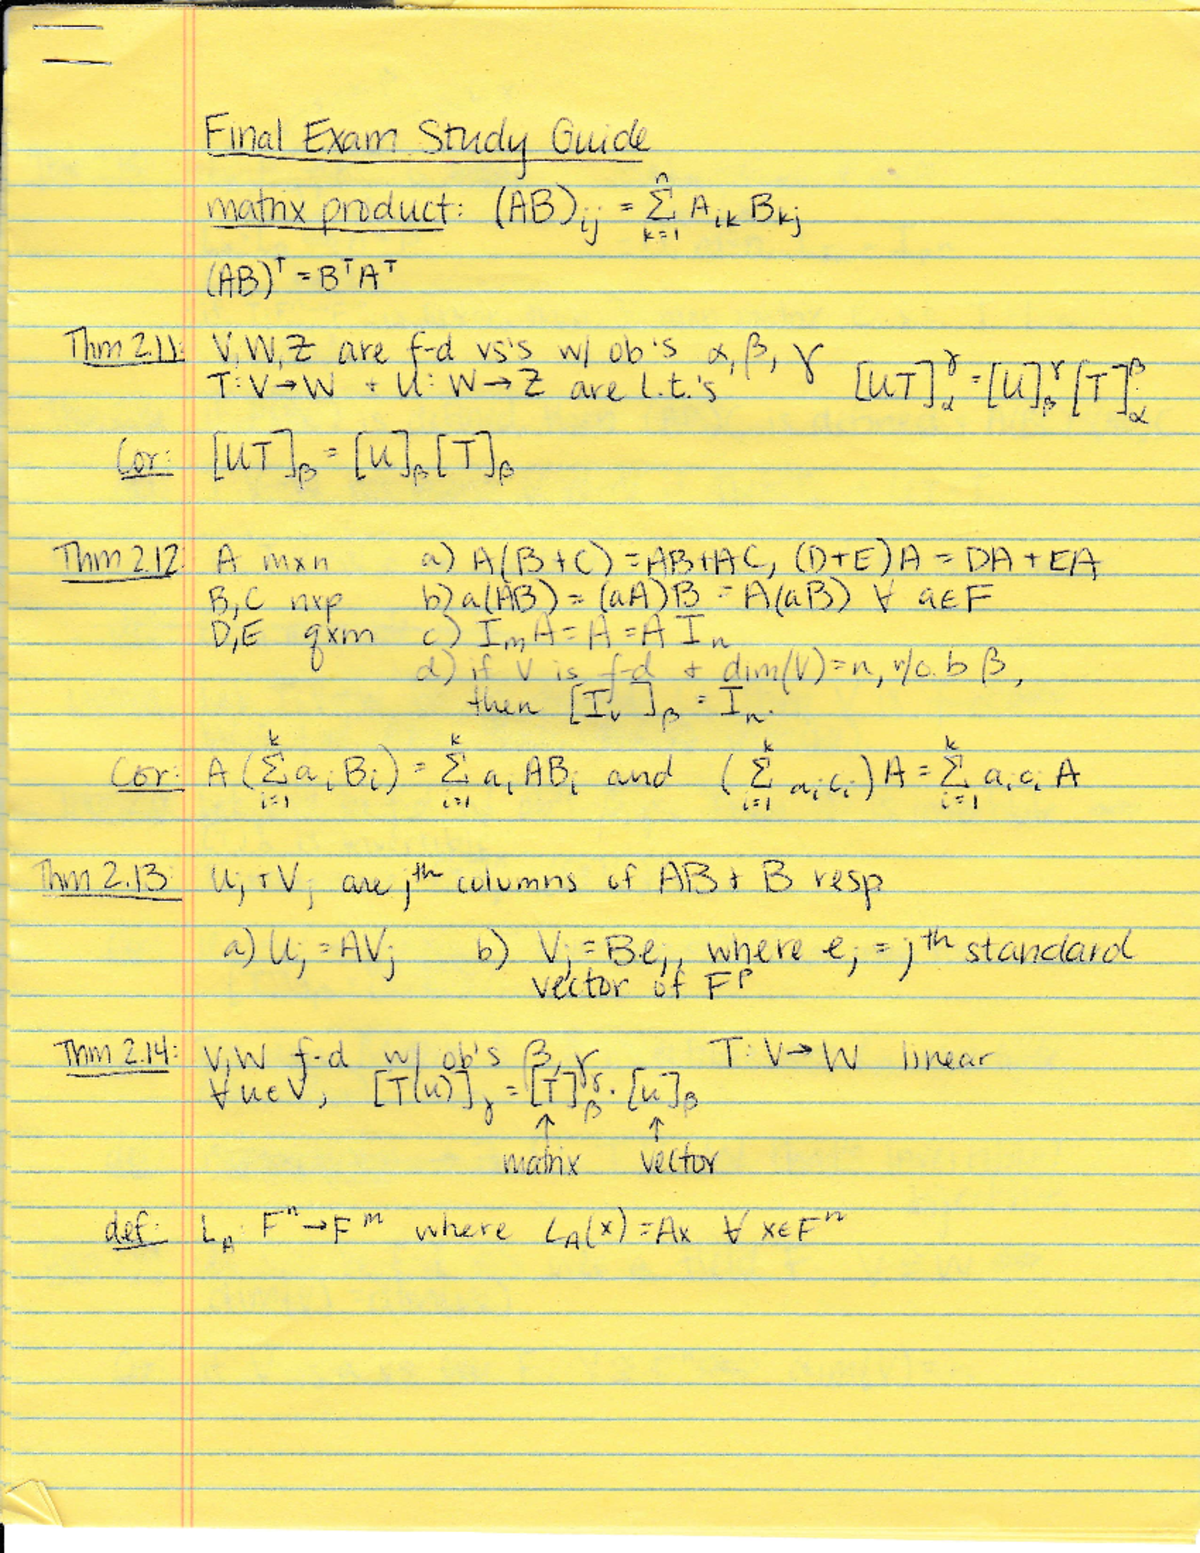 Final Exam Study Guide
matrix product: (AB)ij = n Σ k=1 Aik Bkj
(AB)ᵀ = BᵀAᵀ
Thm 2.11: V, W, Z are f-d vs's w/ ob's α, β, γ
T: V→W + U: W→Z are l.t.'s [UT]γα = [U]γβ [T]βα
Cor: [UT]β = [U]β [T]β
Thm 2.12: A mxn a) A(B+C) = AB+AC, (D+E)A = DA + EA
B,C nxp b) a(AB) = (aA)B = A(aB) ∀ a∈F
D,E qxm c) ImA = A = A In
d) if V is f-d + dim(V)=n, w/o.b β,
then [Iv]β = In.
Cor: A(k Σ i=1 ai Bi) = k Σ i=1 ai ABi and (k Σ i=1 ai ci)A = k Σ i=1 ai ci A
Thm 2.13 Uj + Vj are jth columns of AB + B resp
a) Uj = AVj b) Vj = Bej, where ej = jth standard
vector of Fᵖ
Thm 2.14: V,W f-d w/ ob's β, γ T: V→W linear
∀u∈V, [T(u)]γ = [T]γβ · [u]β
↑ ↑
matrix vector
def: LA: Fⁿ→Fᵐ where LA(x) = Ax ∀ x∈Fⁿ